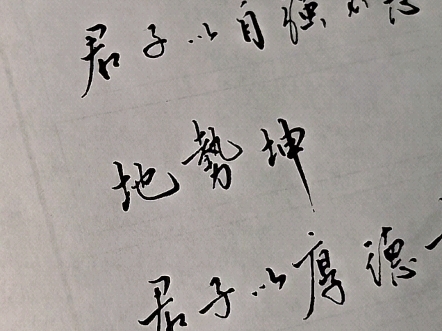 君子以自強不息
地勢坤
君子以厚德